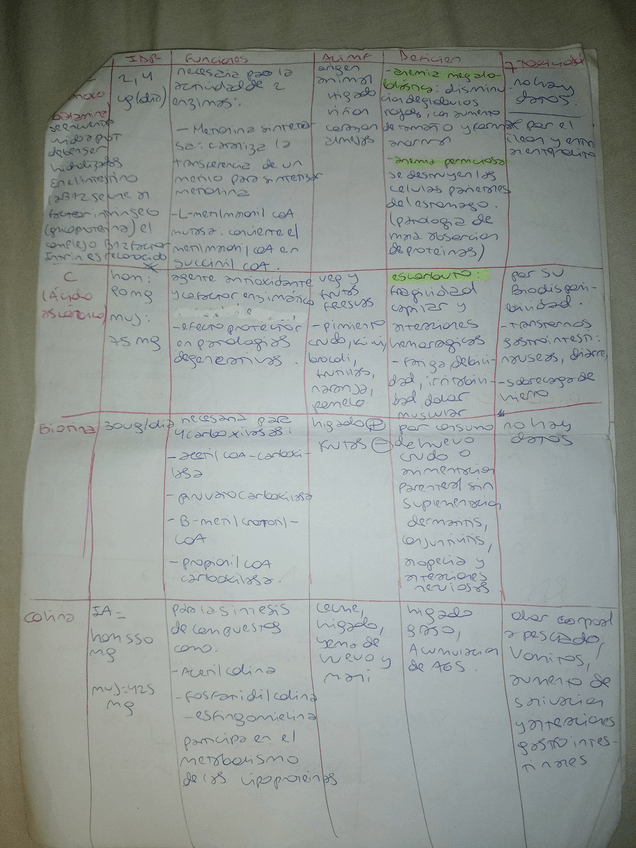 IDR Funciones Alimt Deficien Toxicidad
balamina
se encuentra
unida a prot
deben ser
hidrolizados
En el intestino
la B12 se une al
factor intrinseco
(glucoproteina) el
complejo B12 factor
Intrin es reconocido
2,4
ug(dia)
necesaria para la
actividad de 2
enzimas:
- Metionina sinteta
sa: cataliza la
transferencia de un
metilo para sintetizar
metionina
- L-metilmalonil CoA
mutasa. convierte el
metilmalonil CoA en
succinil COA.
origen
animal
Higado
riñon
corazon
almejas
- anemia megalo-
blastica: disminu
cion de globulos
rojos, con aumento
de tamaño y forma
anormal
- anemia perniciosa
se destruyen las
celulas parietales
del estomago.
(patologia de
mala absorcion
de proteinas)
no hay
datos.
por el
ileon y entra
al enterocito
C
(Ácido
ascorbico)
hom:
90mg
muj:
75 mg
agente antioxidante
y cofactor enzimático
- efecto protector
en patologias
degenerativas.
veg y
frutas
frescas
- pimiento
crudo, kiwi,
brocoli,
frutilla,
naranja,
pomelo
escorbuto:
fragilidad
capilar y
alteraciones
hemorragicas
- Fatiga, debili-
dad, irritabili-
dad dolor
muscular
por su
Biodisponi-
bilidad.
- transtornos
gastrointesti:
nauseas, diarrea,
- sobrecarga de
hierro
Biotina
30ug/dia
necesaria para
4 carboxilasas:
- acetil COA-carboxi-
lasa
- piruvato carboxilasa
- B-metilcrotonil-
COA
- propionil COA
carboxilasa.
higado +
frutas -
por consumo
de huevo
crudo o
alimentacion
parenteral sin
suplementacion
dermatitis,
conjuntivitis,
alopecia y
alteraciones
nerviosas
no hay
datos
Colina
IA=
hom 550
mg
muj=425
mg
Para la sintesis
de compuestos
como:
- Acetilcolina
- Fosfatidilcolina
- esfingomielina
participa en el
metabolismo
de las lipoproteinas
Leche,
higado,
yema de
huevo y
mani
higado
graso,
Acumulacion
de AGS.
olor corporal
a pescado,
Vomitos,
aumento de
salivacion
y alteraciones
gastrointes-
tinales